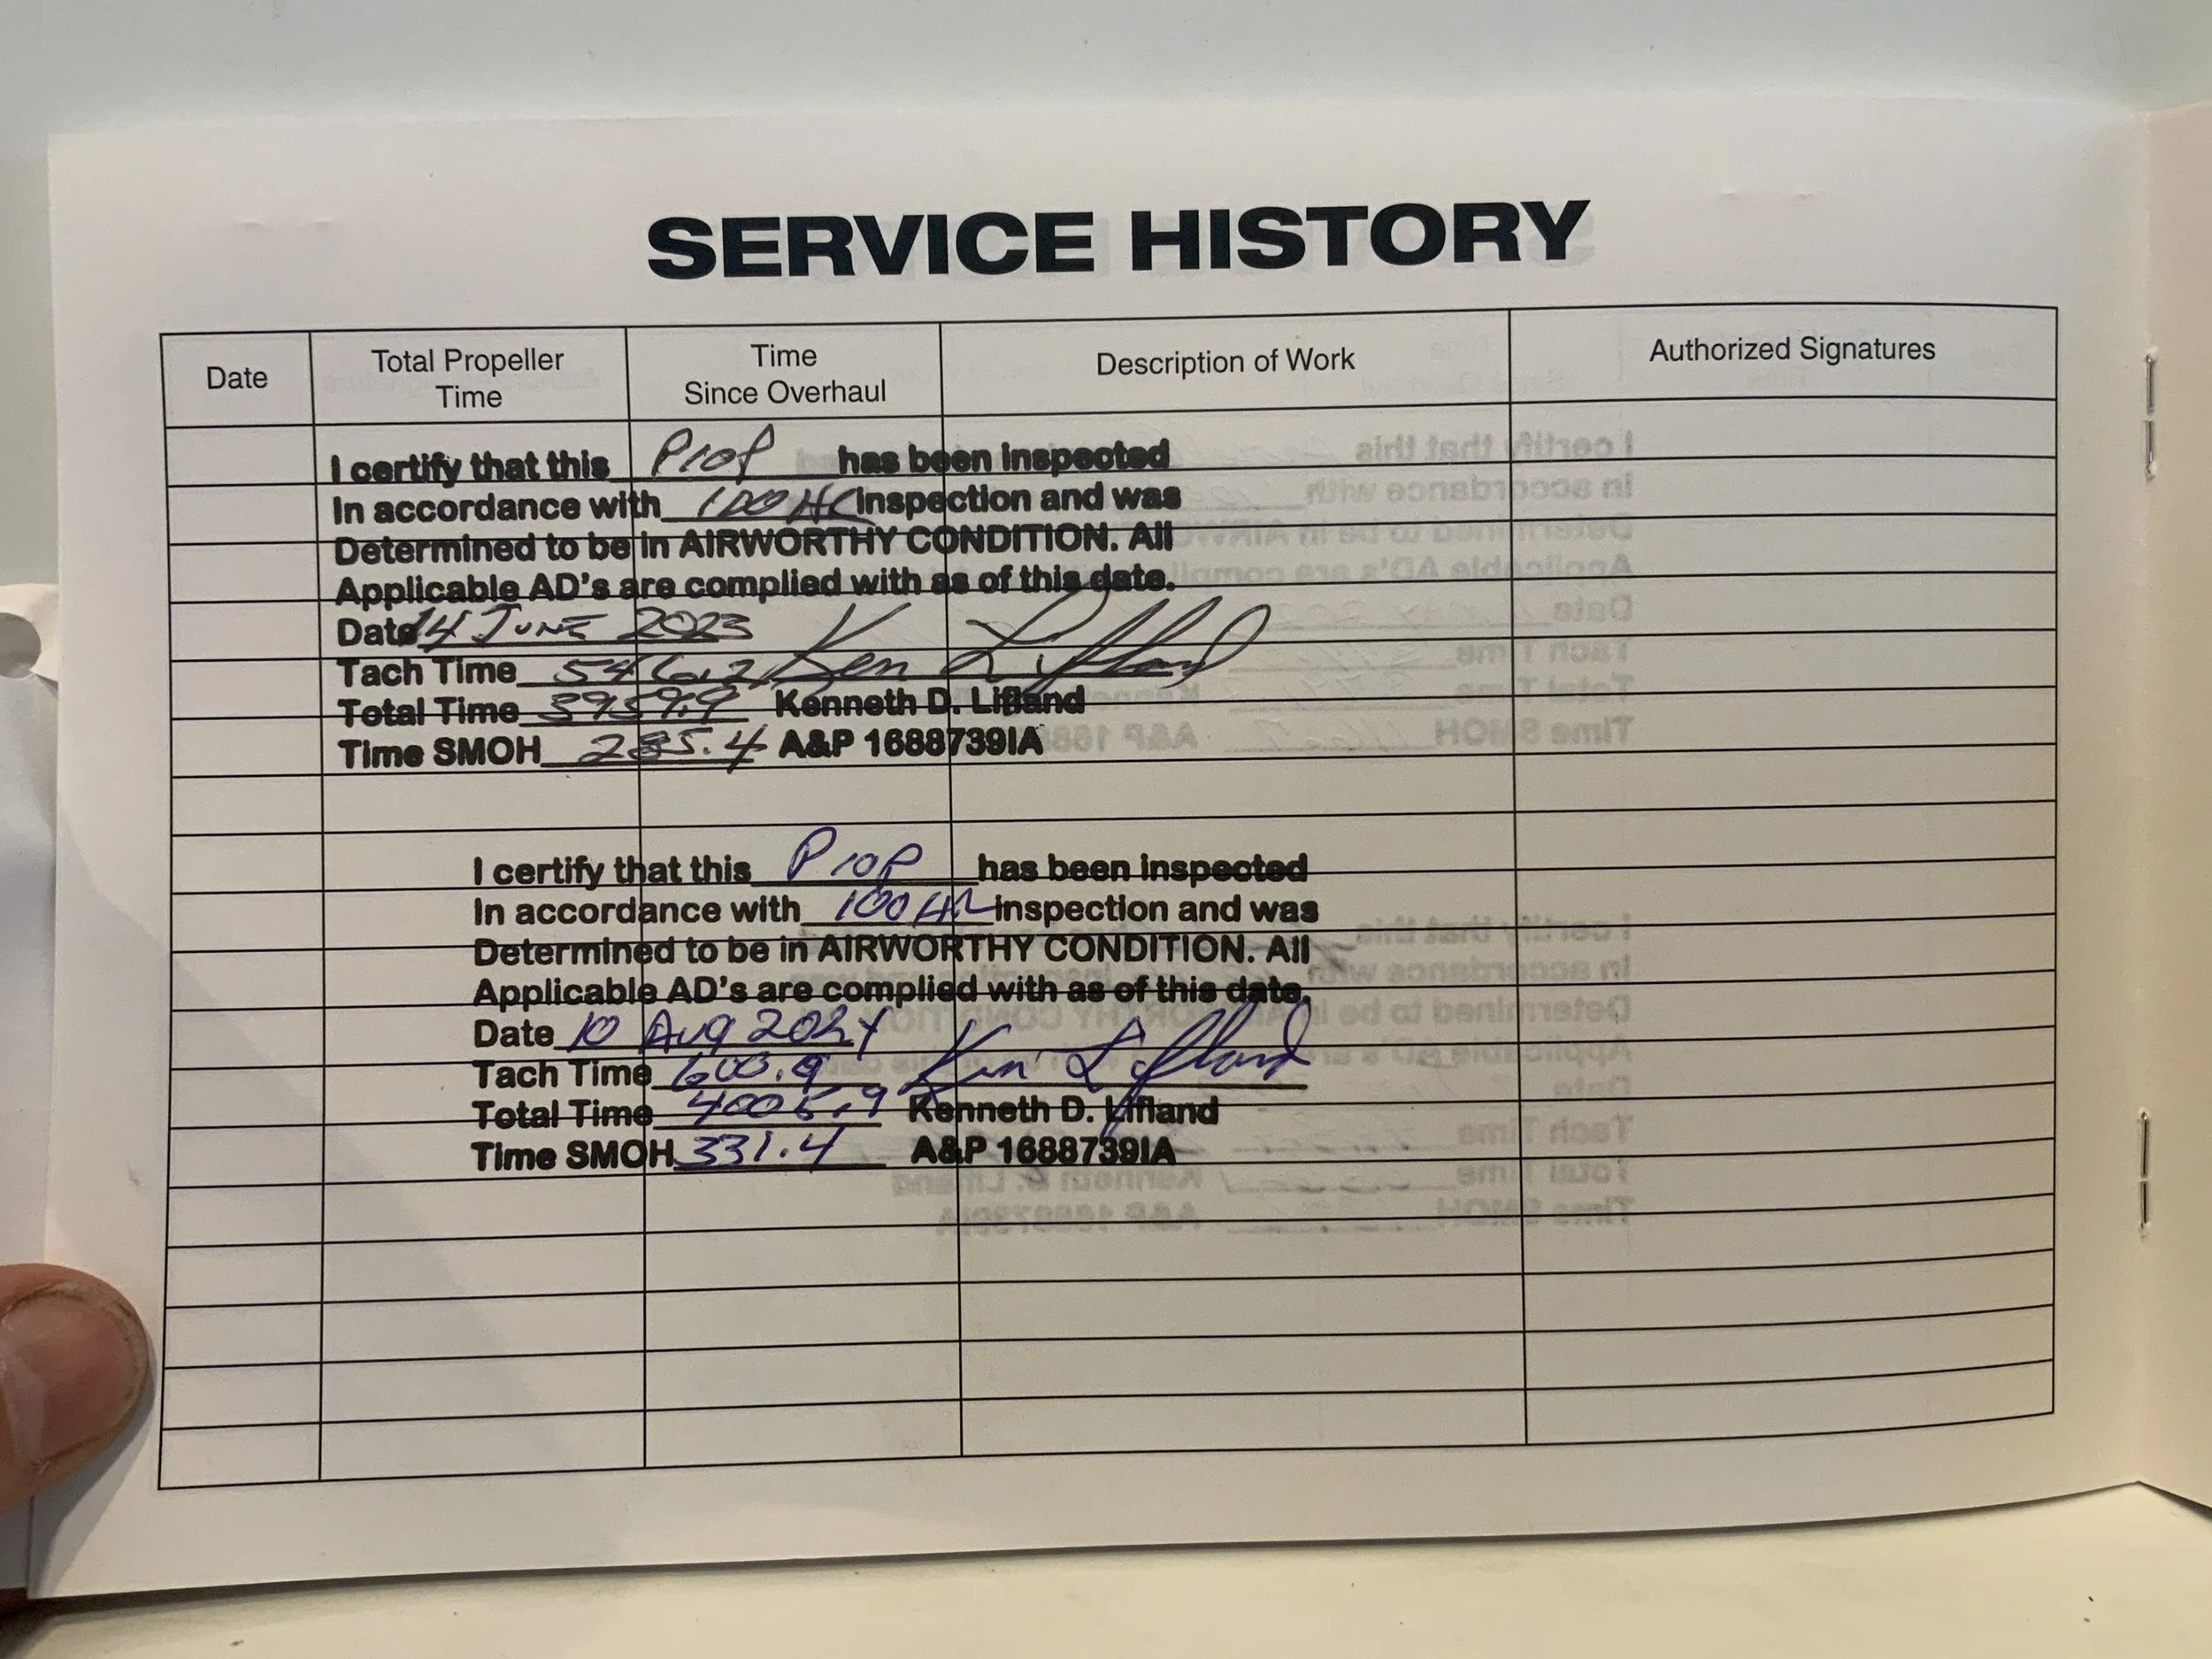 SERVICE HISTORY
Date Total Propeller Time Time Since Overhaul Description of Work Authorized Signatures
I certify that this Prop has been inspected
In accordance with 100 Hr inspection and was
Determined to be in AIRWORTHY CONDITION. All
Applicable AD's are complied with as of this date.
Date 14 JUNE 2023 Ken Lifland
Tach Time 546.2
Total Time 3959.9 Kenneth D. Lifland
Time SMOH 285.4 A&P 1688739IA
I certify that this Prop has been inspected
In accordance with 100 Hr inspection and was
Determined to be in AIRWORTHY CONDITION. All
Applicable AD's are complied with as of this date.
Date 10 Aug 2024 Ken Lifland
Tach Time 600.9
Total Time 4005.9 Kenneth D. Lifland
Time SMOH 331.4 A&P 1688739IA